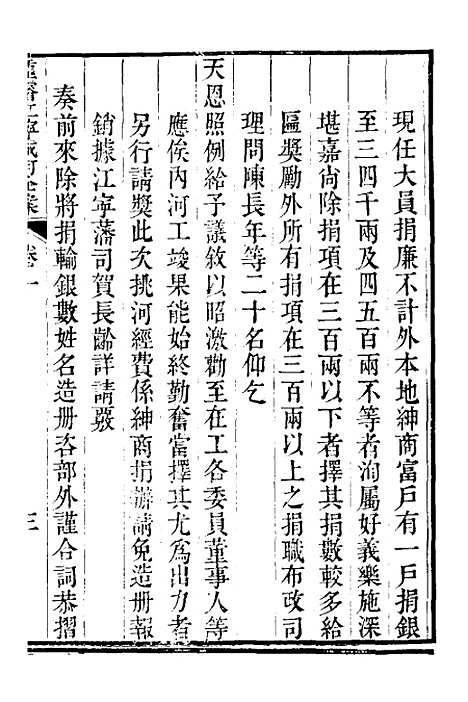 現任大員捐廉不計外本地紳商富戶有一戶捐銀
至三四千兩及四五百兩不等者洵屬好義樂施深
堪嘉尙除捐項在三百兩以下者擇其捐數較多給
區獎勵外所有捐項在三百兩以上之捐職布政司
理問陳長年等二十名仰乞
天恩照例給予議敘以昭激勸至在工各委員董事人等
應俟內河工竣果能始終勤奮當擇其尤爲出力者
另行請獎此次挑河經費係紳商捐辦請免造册報
銷據江寧藩司賀長齡詳請覈
奏前來除將捐輸銀數姓名造册咨部外謹合詞恭摺
卷一
三